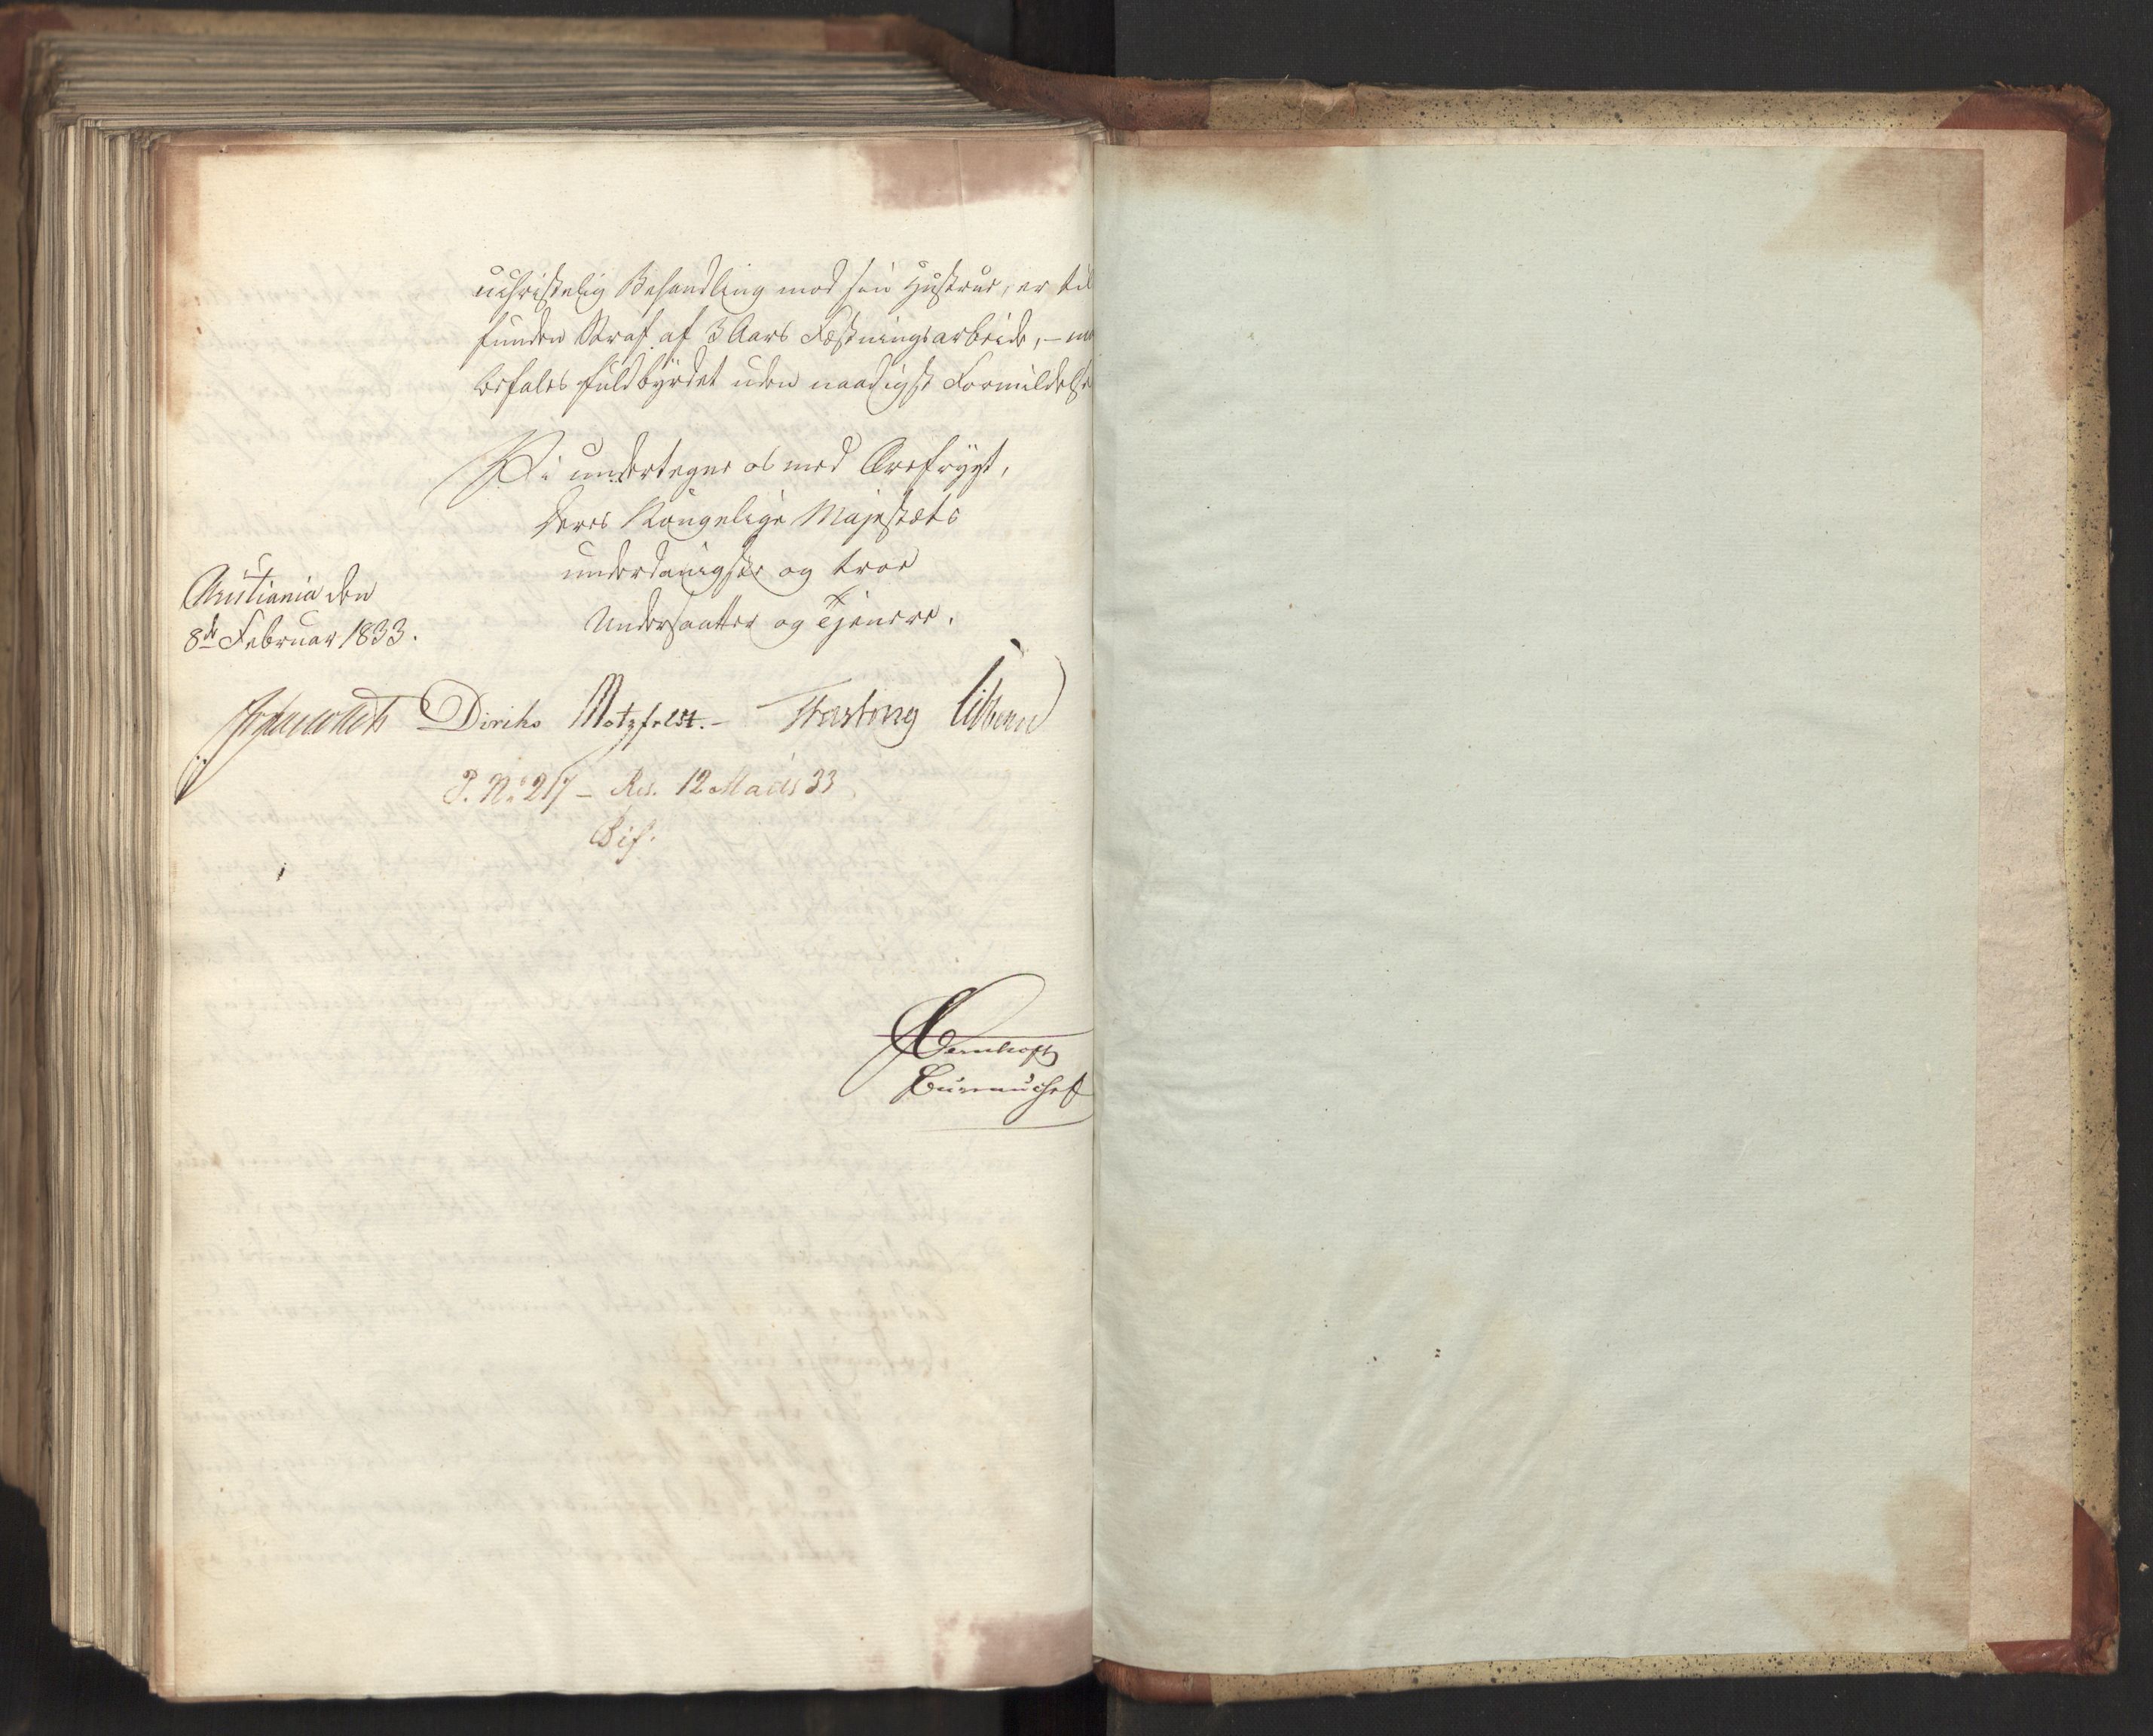 uchristelig Behandling mod sin Hustrue, er til
funden Straf af 3 Aars Fæstningsarbeide, –
befales fuldbyrdet uden naadigst Formildelse
Vi undertegne os med Ærefrygt,
Deres Kongelige Majestæts
underdanigste og troe
Undersaatter og Tjenere.
Christiania den
8de Februar 1833.
Diriks Motzfeldt. – Fasting
P. No 217 – Res. 12 Marts 33
Bureauchef